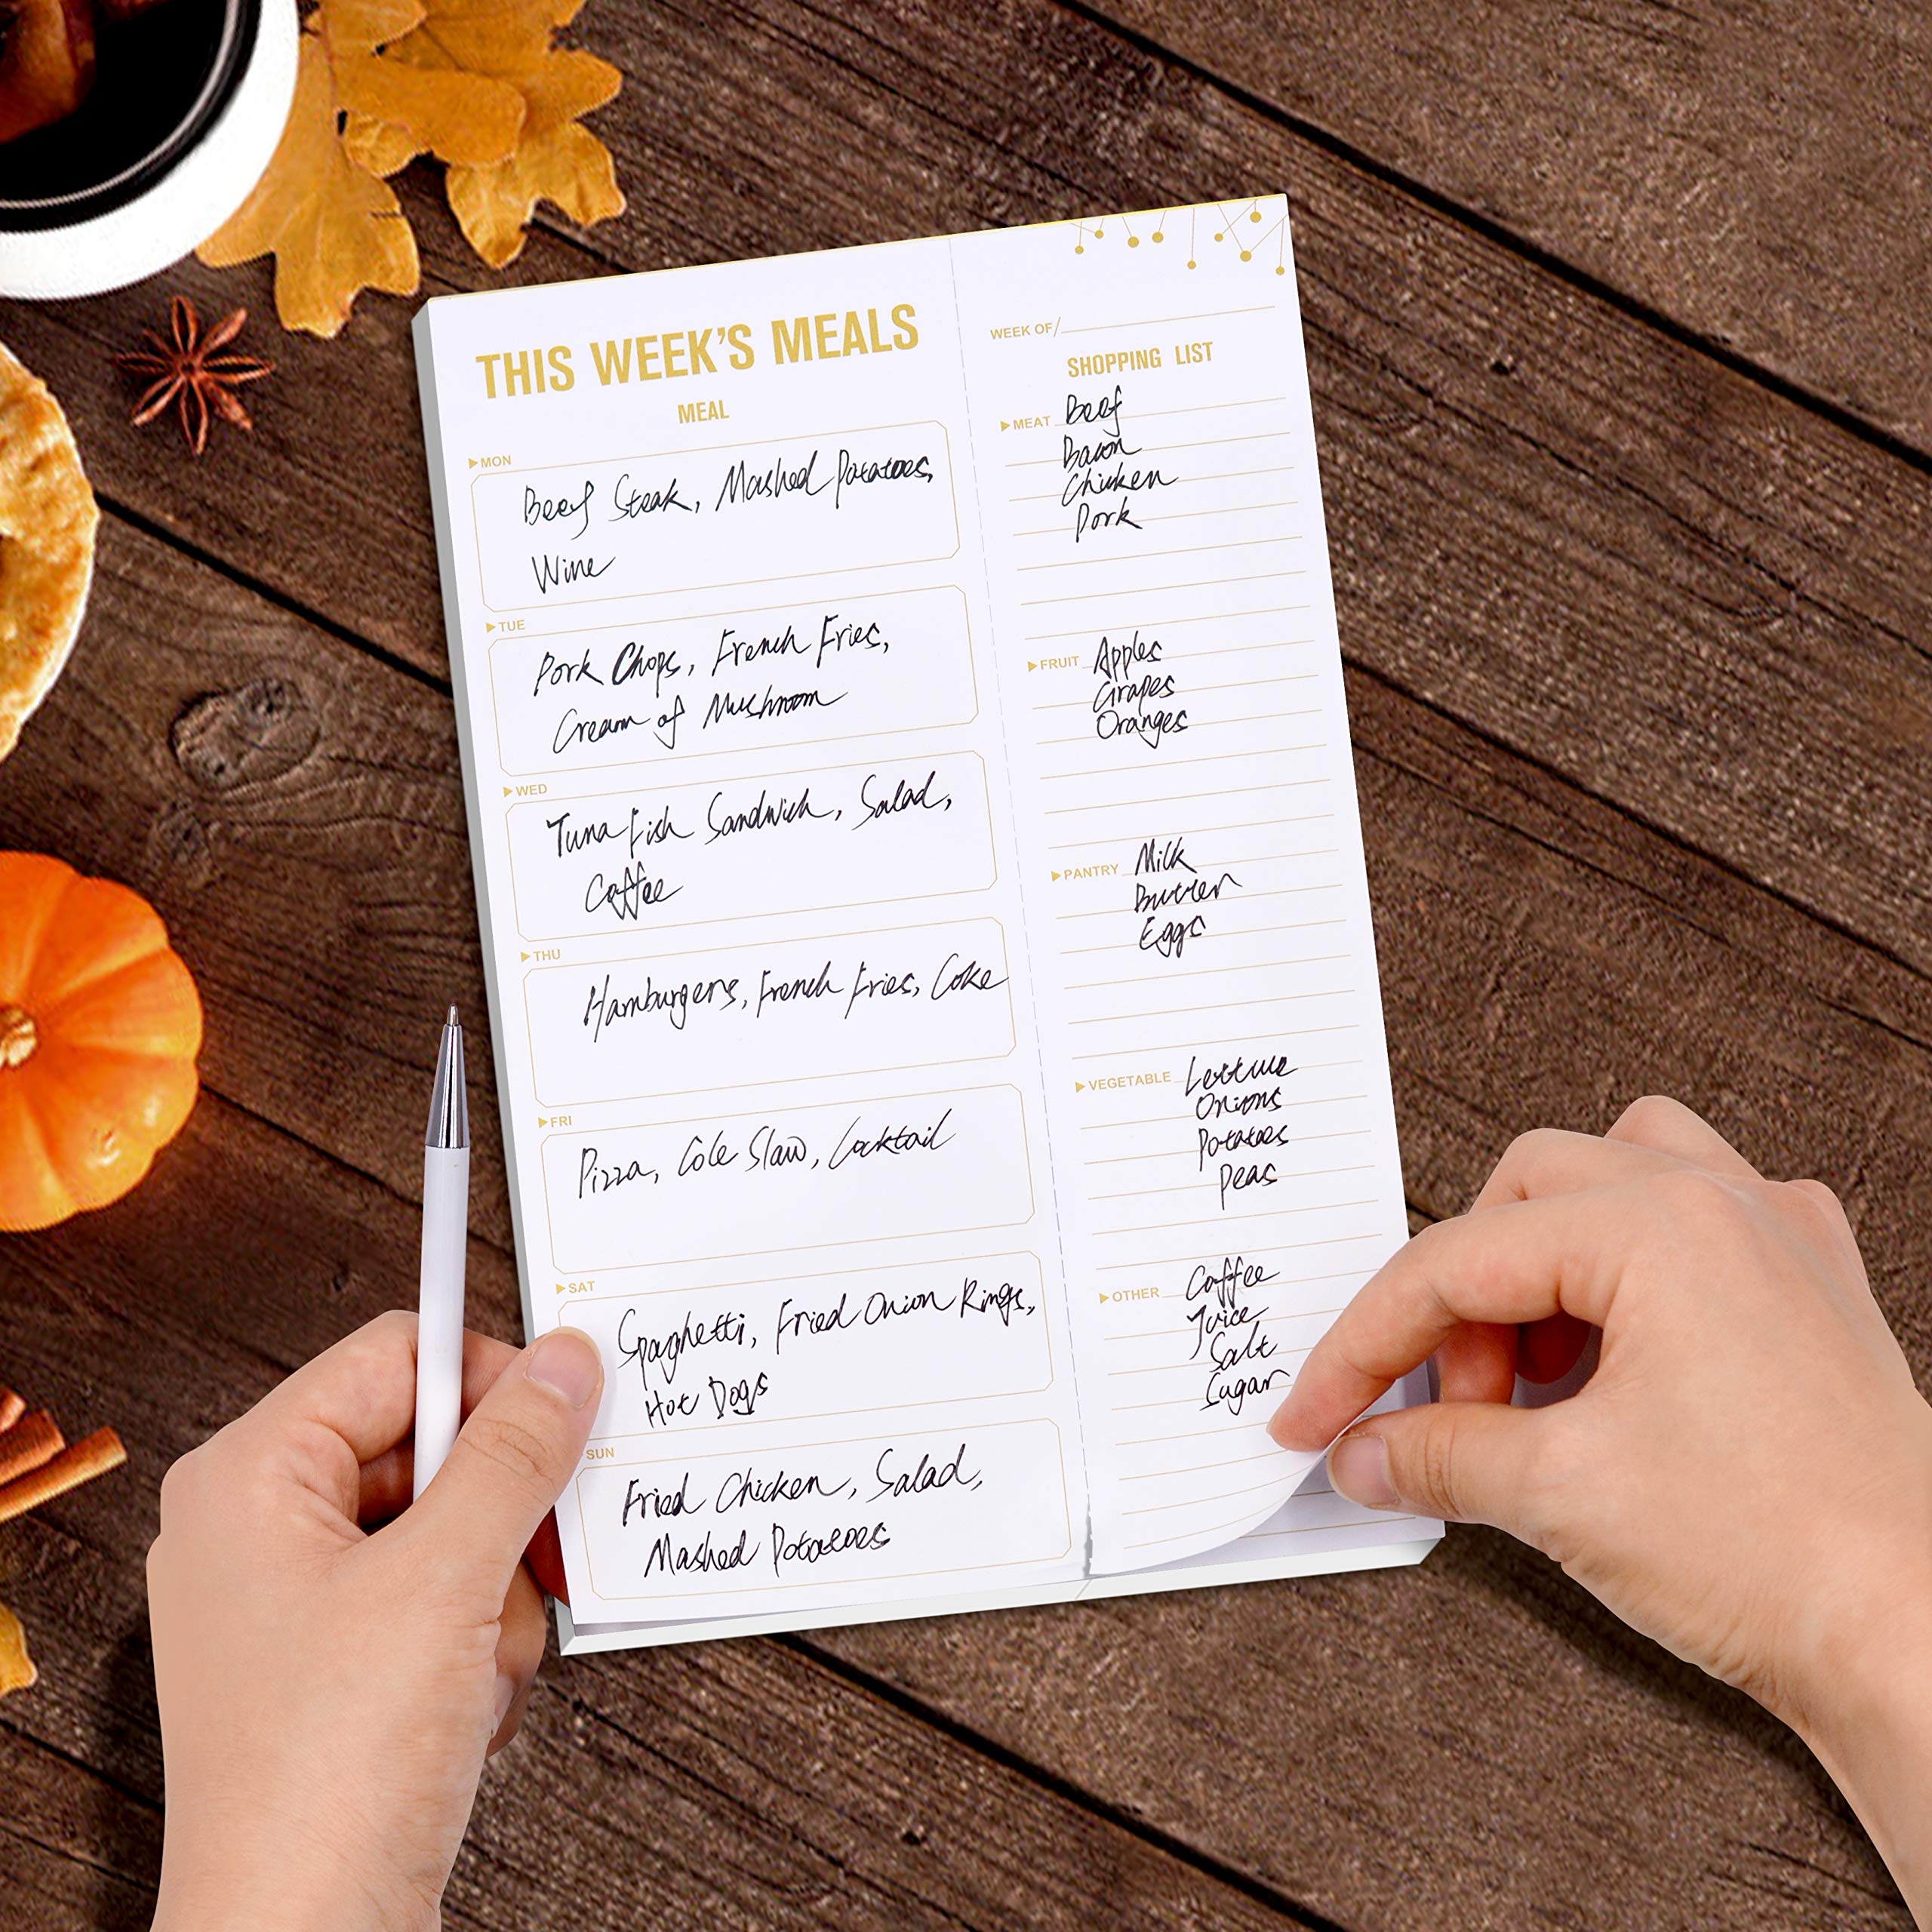 THIS WEEK'S MEALS
MEAL
MON
Beef Steak, Mashed Potatoes,
Wine
TUE
Pork Chops, French Fries,
Cream of Mushroom
WED
Tuna Fish Sandwich, Salad,
Coffee
THU
Hamburgers, French Fries, Coke
FRI
Pizza, Cole Slaw, Cocktail
SAT
Spaghetti, Fried Onion Rings,
Hot Dogs
SUN
Fried Chicken, Salad,
Mashed Potatoes
WEEK OF/
SHOPPING LIST
MEAT Beef
Bacon
Chicken
Pork
FRUIT Apples
Grapes
Oranges
PANTRY Milk
Butter
Eggs
VEGETABLE Lettuce
Onions
Potatoes
Peas
OTHER Coffee
Juice
Salt
Sugar